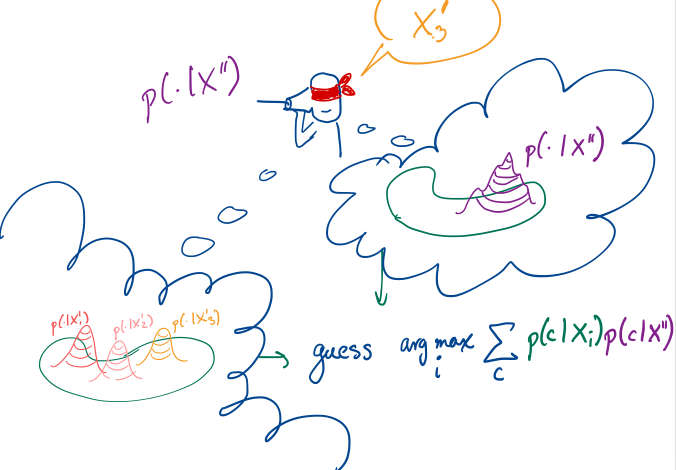 X'₃
p(·|X'')
p(·|X'')
p(·|X'₁)
p(·|X'₂)
p(·|X'₃)
guess arg max_i ∑_c p(c|X_i) p(c|X'')